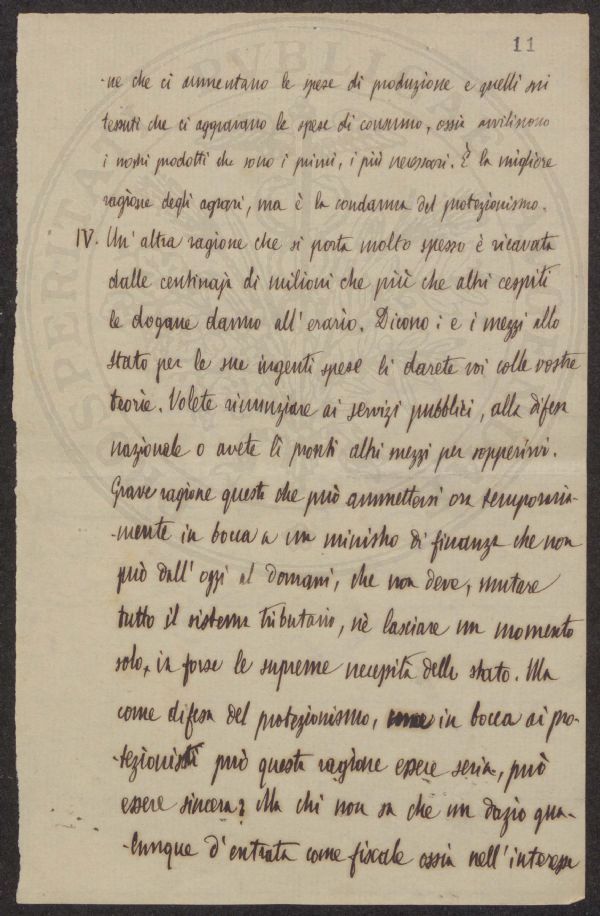 11
-ne che ci aumentano le spese di produzione e quelli sui
tessuti che ci aggravano le spese di consumo, ossia avviliscono
i nostri prodotti che sono i primi, i più necessari. È la migliore
ragione degli agrari, ma è la condanna del protezionismo.
IV. Un' altra ragione che si porta molto spesso è ricavata
dalle centinaja di milioni che più che altri cespiti
le dogane danno all' erario. Dicono: e i mezzi allo
stato per le sue ingenti spese li darete voi colle vostre
teorie. Volete rinunziare ai servizi pubblici, alla difesa
nazionale o avete lì pronti altri mezzi per sopperirvi.
Grave ragione questa che può ammettersi ora temporania-
-mente in bocca a un ministro di finanza che non
può dall' oggi al domani, che non deve, mutare
tutto il sistema tributario, nè lasciare un momento
solo, in forse le supreme necessità dello stato. Ma
come difesa del protezionismo, in bocca ai pro-
-tezionisti può questa ragione essere seria, può
essere sincera? Ma chi non sa che un dazio qua-
-lunque d' entrata come fiscale ossia nell' interesse
PROSPERITAS PVBLICA